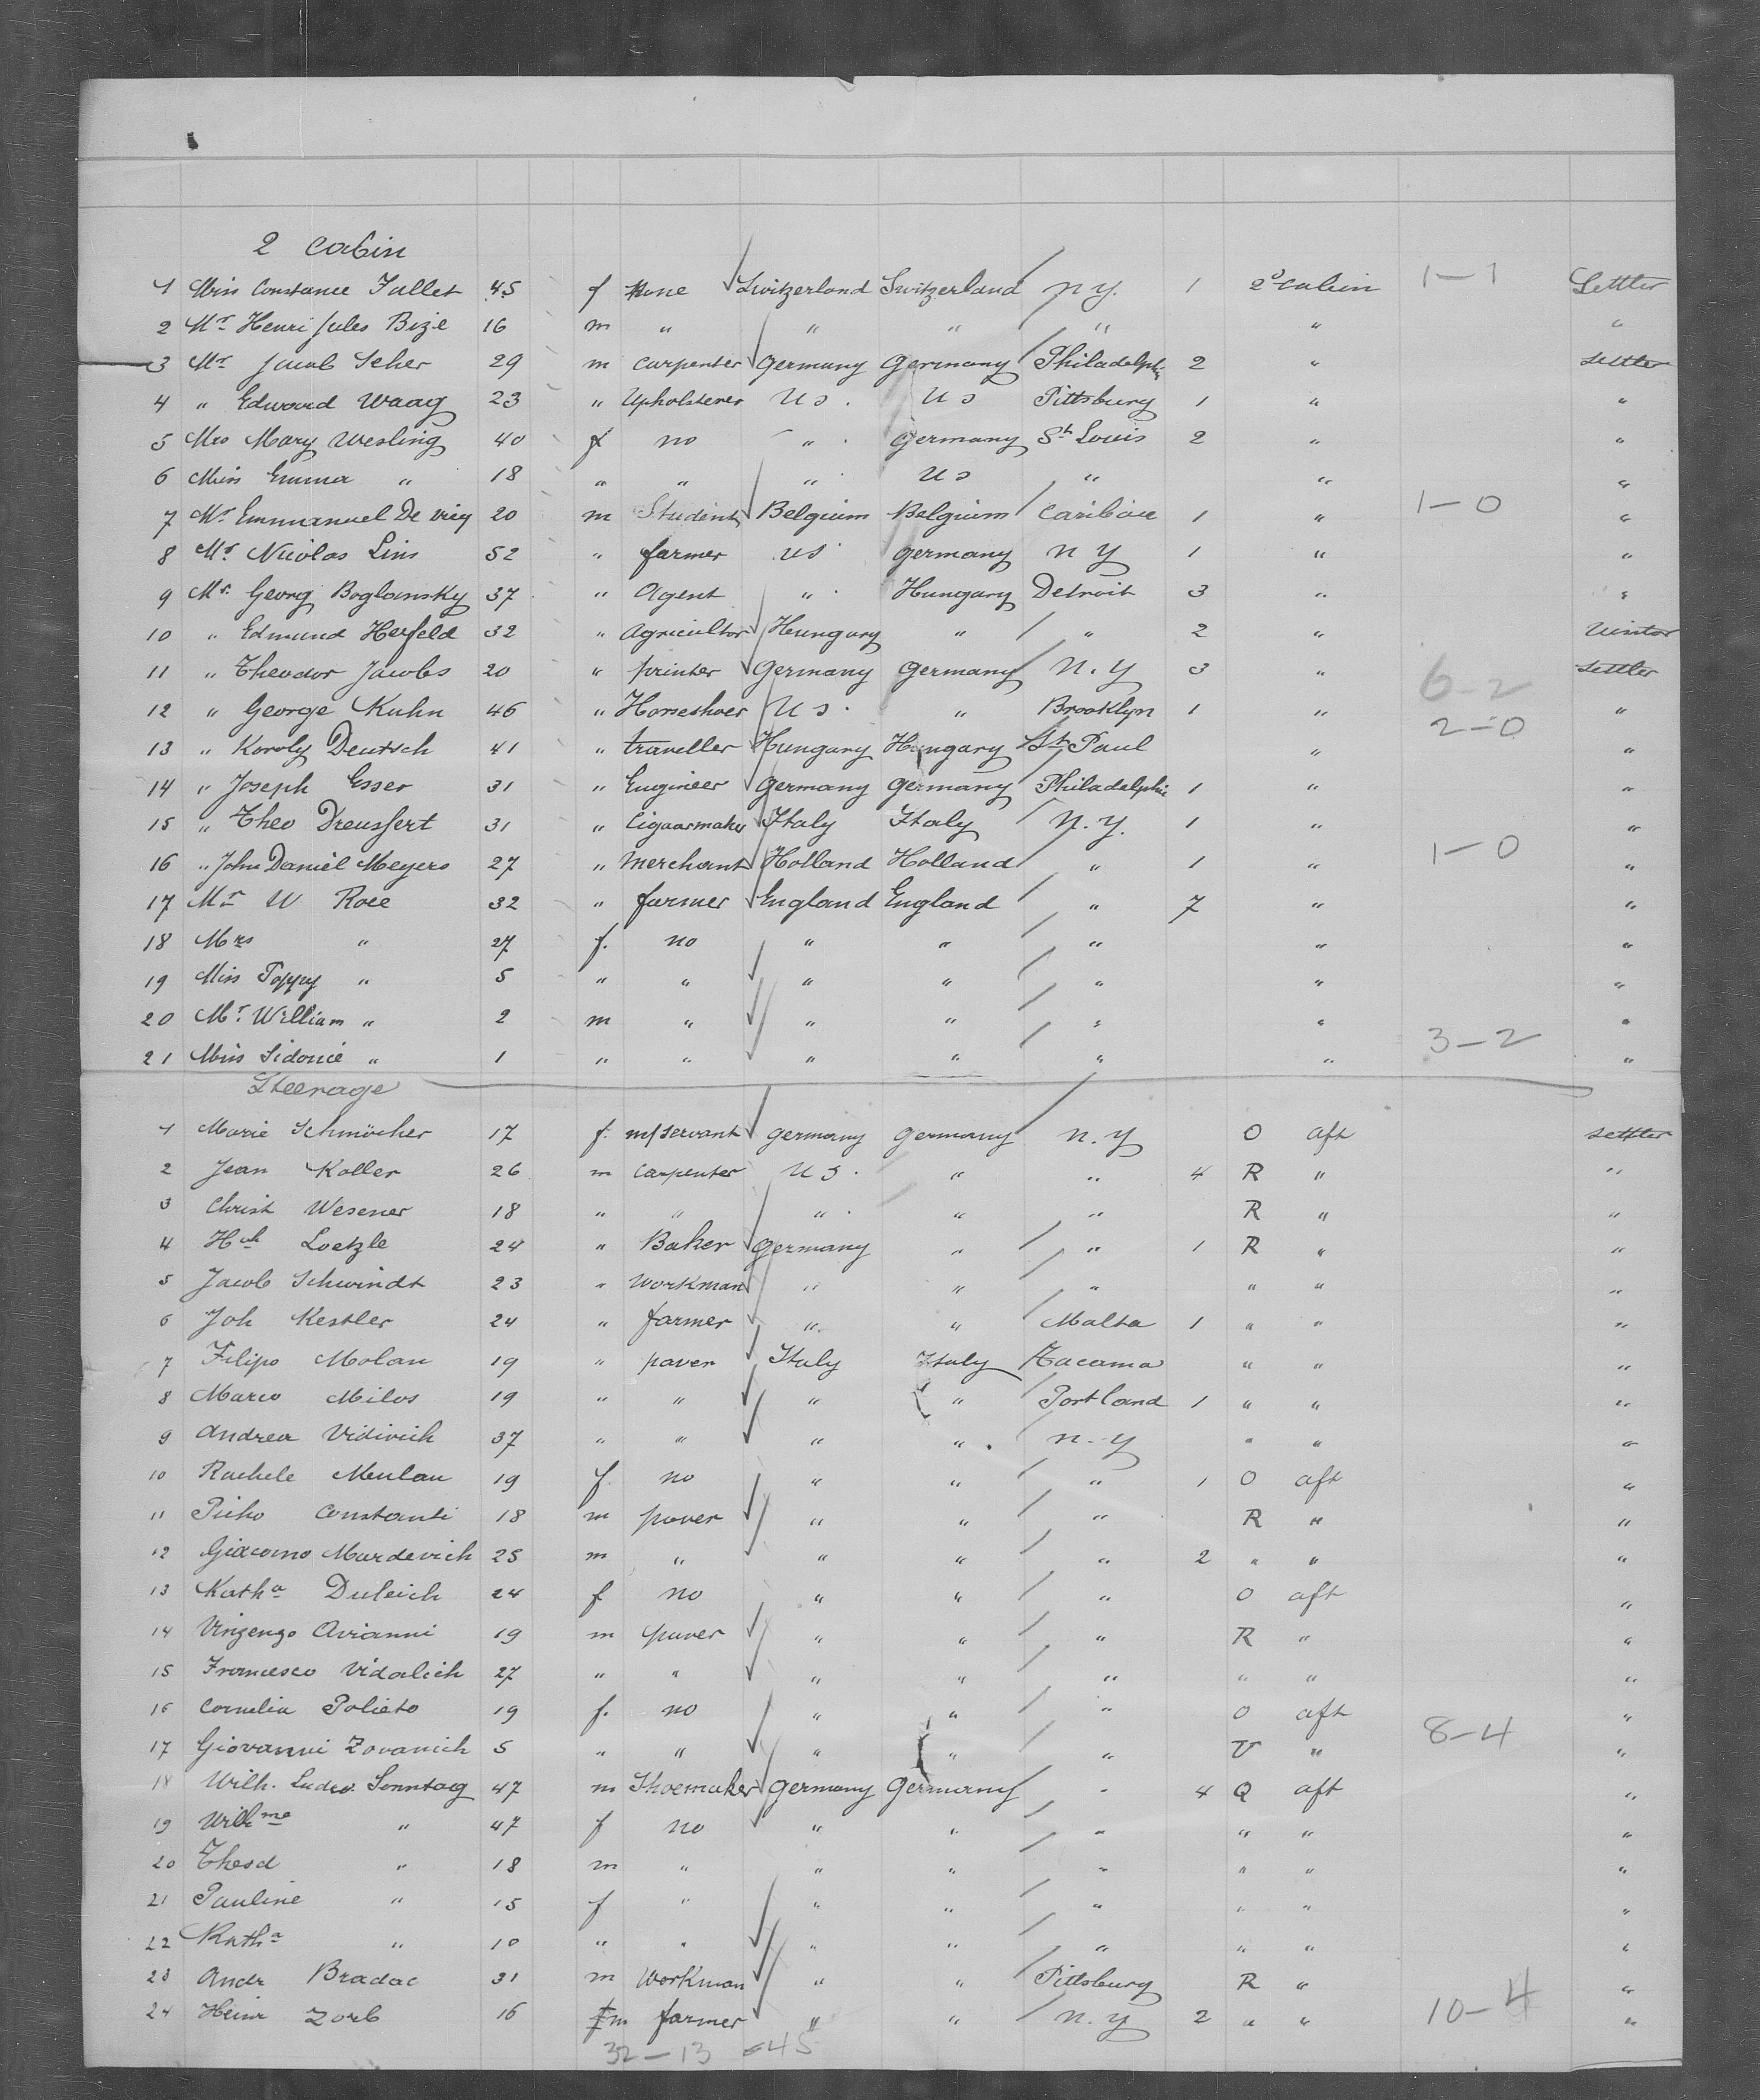 2 Cabin
1 Miss Constance Jallet 45 f none Switzerland Switzerland N.Y. 1 2d Cabin 1-1 Settler
2 Mr Henri Jules Bize 16 m " " " " " "
3 Mr Jacob Seher 29 m Carpenter Germany Germany Philadelphia 2 " Settler
4 " Edward Waag 23 " Upholsterer U S. U S Pittsburg 1 " "
5 Mrs Mary Wesling 40 f no " Germany St Louis 2 " "
6 Miss Emma " 18 " " " U S " " "
7 Mr Emmanuel De 20 m Student Belgium Belgium 1 " 1-0 "
8 Mr Nicolas Lins 52 " farmer U S Germany N Y 1 " "
9 Mr. Georg Boglansky 37 " Agent " Hungary Detroit 3 " "
10 " Edmund Herfeld 32 " Agricultor Hungary " " 2 " Visitor
11 " Theodor Jacobs 20 " printer Germany Germany N.Y 3 " 6-2 Settler
12 " George Kuhn 46 " Horseshoer U S. " Brooklyn 1 " 2-0 "
13 " Karoly Deutsch 41 " traveller Hungary Hungary St Paul " "
14 " Joseph Esser 31 " Engineer Germany Germany Philadelphia 1 " "
15 " Theo Dreussert 31 " Cigaarmaker Italy Italy N.Y. 1 " "
16 " John Daniel Meyers 27 " Merchant Holland Holland " 1 " 1-0 "
17 Mr W Roee 32 " farmer England England " 7 " "
18 Mrs " 27 f. no " " " " "
19 Miss Poppy " 5 " " " " " " "
20 Mr. William " 2 m " " " " " "
21 Miss Sidonie " 1 " " " " " " 3-2 "
Steerage
1 Marie Schmöcher 17 f. m/servant Germany Germany N.Y O aft Settler
2 Jean Koller 26 m Carpenter U S. " " 4 R " "
3 Christ Wesener 18 " " " " " R " "
4 Hch Loetzle 24 " Baker Germany " " 1 R " "
5 Jacob Schwindt 23 " Workman " " " " " "
6 Joh Kestler 24 " farmer " " Malta 1 " " "
7 Filipo Molan 19 " paver Italy Italy Tacoma " " "
8 Marco Milos 19 " " " " Portland 1 " " "
9 Andrea Vidivich 37 " " " " N.Y " " "
10 Rachele Meulan 19 f. no " " " 1 O aft "
11 Constanti 18 m paver " " " R " "
12 Giacomo Murdevich 25 m " " " " 2 " " "
13 Katha Duleich 24 f no " " " O aft "
14 Vinzenzo Avianni 19 m paver " " " R " "
15 Francesco Vidalich 27 " " " " " " " "
16 Cornelia Polieto 19 f. no " " " O aft "
17 Giovanni Zovanich 5 " " " " " V " 8-4 "
18 Wilh. Ludw. Sonntag 47 m Shoemaker Germany Germany " 4 Q aft "
19 Wilhme " 47 f no " " " " " "
20 Theod " 18 m " " " " " " "
21 Pauline " 15 f " " " " " " "
22 Katha " 10 " " " " " " " "
23 Andr Bradac 31 m Workman " " Pittsburg R " "
24 Heinr Zorb 16 m farmer " " N.Y 2 " " 10-4 "
32-13=45